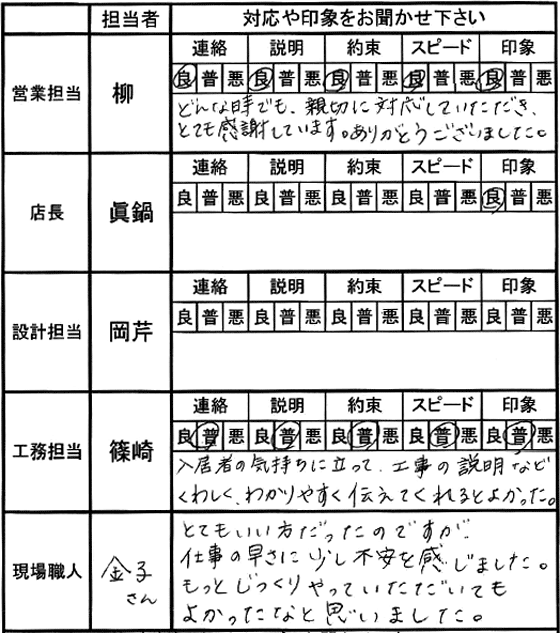 担当者 対応や印象をお聞かせ下さい
営業担当 柳
連絡 説明 約束 スピード 印象
良 普 悪 良 普 悪 良 普 悪 良 普 悪 良 普 悪
どんな時でも、親切に対応していただき、
とても感謝しています。ありがとうございました。
店長 眞鍋
連絡 説明 約束 スピード 印象
良 普 悪 良 普 悪 良 普 悪 良 普 悪 良 普 悪
設計担当 岡芹
連絡 説明 約束 スピード 印象
良 普 悪 良 普 悪 良 普 悪 良 普 悪 良 普 悪
工務担当 篠崎
連絡 説明 約束 スピード 印象
良 普 悪 良 普 悪 良 普 悪 良 普 悪 良 普 悪
入居者の気持ちに立って、工事の説明など
くわしく、わかりやすく伝えてくれるとよかった。
現場職人 金子さん
とてもいい方だったのですが
仕事の早さに少し不安を感じました。
もっとじっくりやっていただいても
よかったなと思いました。